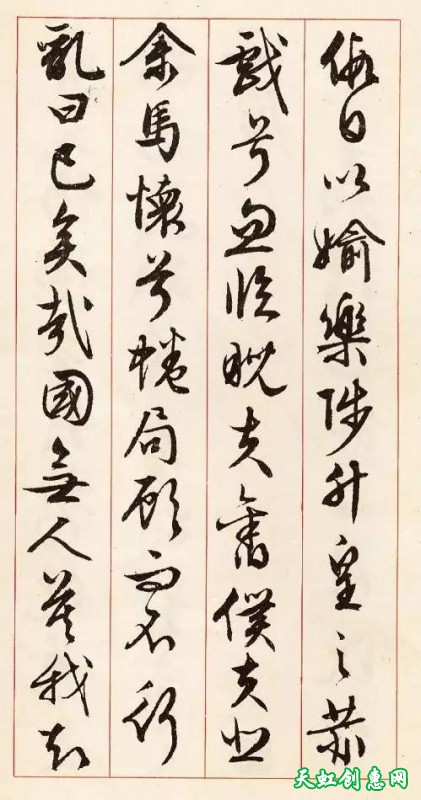 假日以媮樂陟升皇之赫
戲兮忽臨睨夫舊僕夫悲
余馬懷兮蜷局顧而不行
亂曰已矣哉國無人莫我知
天虹创意网